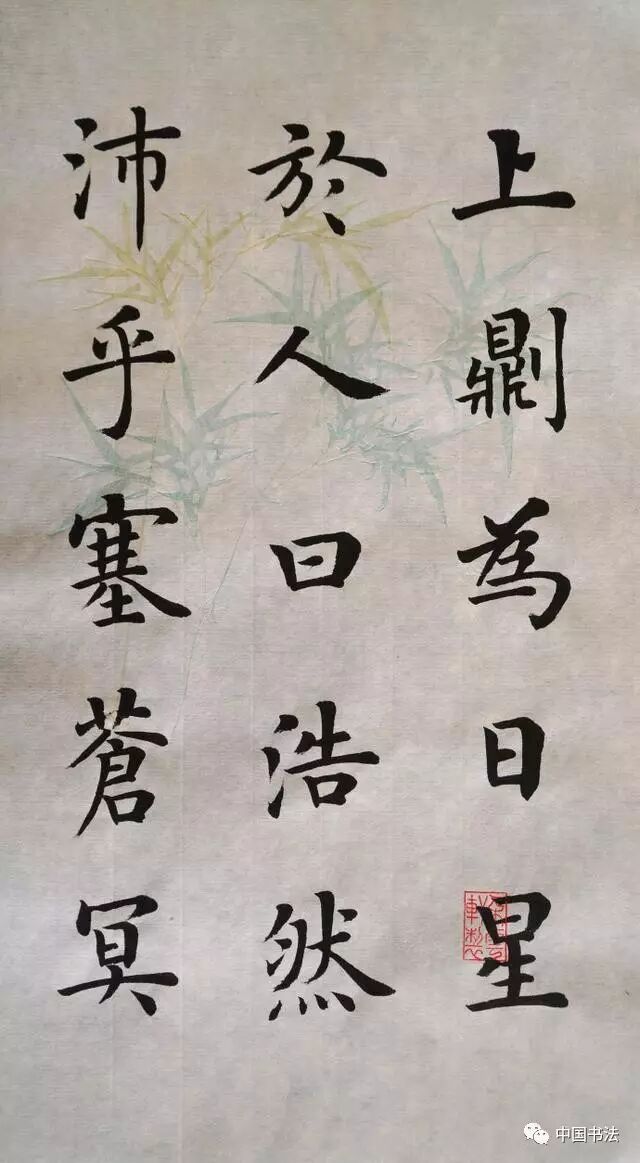 上則為日星
於人曰浩然
沛乎塞蒼冥
中国书法